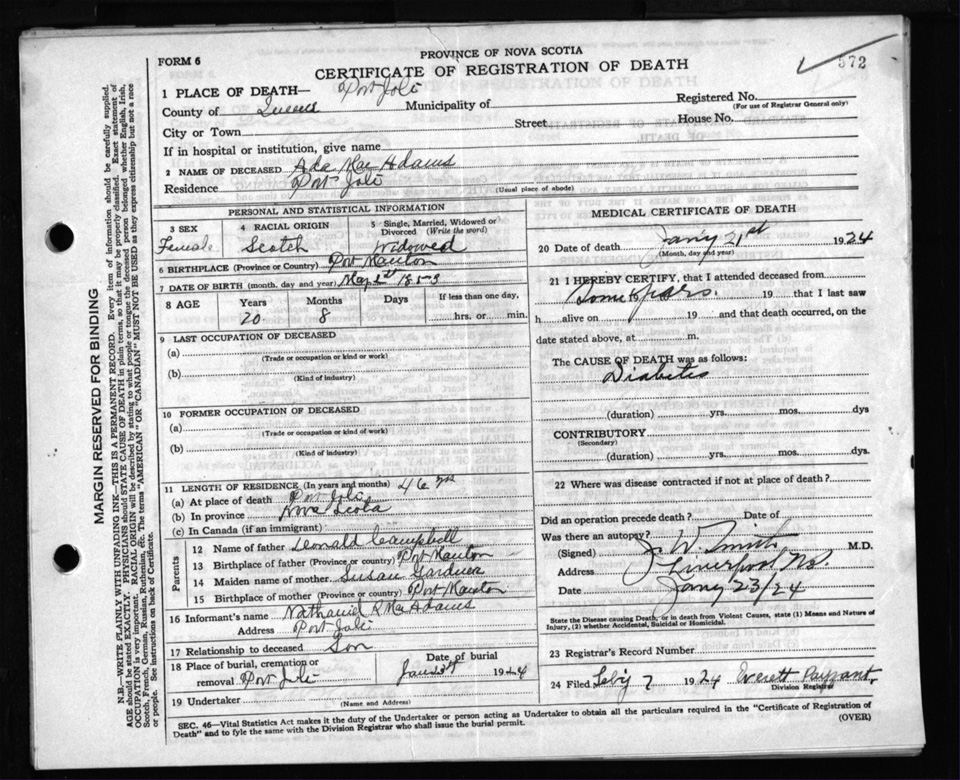 PROVINCE OF NOVA SCOTIA
FORM 6
CERTIFICATE OF REGISTRATION OF DEATH
572
1 PLACE OF DEATH— Port Joli
County of Queens Municipality of
Registered No.
(For use of Registrar General only)
City or Town Street House No.
If in hospital or institution, give name
2 NAME OF DECEASED Ada MacAdams
Residence Port Joli
(Usual place of abode)
PERSONAL AND STATISTICAL INFORMATION
3 SEX 4 RACIAL ORIGIN 5 Single, Married, Widowed or Divorced (Write the word)
Female Scotch Widowed
6 BIRTHPLACE (Province or Country) Port Mouton
7 DATE OF BIRTH (month, day and year) May 1853
8 AGE Years Months Days If less than one day,
70 8 hrs. or min.
9 LAST OCCUPATION OF DECEASED
(a)
(Trade or occupation or kind or work)
(b)
(Kind of industry)
10 FORMER OCCUPATION OF DECEASED
(a)
(Trade or occupation or kind of work)
(b)
(Kind of industry)
11 LENGTH OF RESIDENCE (In years and months) 46 yrs
(a) At place of death Port Joli
(b) In province Nova Scotia
(c) In Canada (if an immigrant)
Parents
12 Name of father Leonald Campbell
13 Birthplace of father (Province or country) Port Mouton
14 Maiden name of mother Susan Gardner
15 Birthplace of mother (Province or country) Port Mouton
16 Informant's name Nathaniel R MacAdams
Address Port Joli
17 Relationship to deceased Son
18 Place of burial, cremation or Date of burial
removal Port Joli Jan 23rd 1924
19 Undertaker Address
MEDICAL CERTIFICATE OF DEATH
20 Date of death Jan'y 21st 1924
(Month, day and year)
21 I HEREBY CERTIFY, that I attended deceased from
Some yrs. 19 that I last saw
h alive on 19 and that death occurred, on the
date stated above, at m.
The CAUSE OF DEATH was as follows:
Diabetes
(duration) yrs. mos. dys
CONTRIBUTORY
(Secondary)
(duration) yrs. mos. dys.
22 Where was disease contracted if not at place of death?
Did an operation precede death? Date of
Was there an autopsy?
(Signed) J. W. Smith M.D.
Address Liverpool NS.
Date Jany 23/24
State the Disease causing Death, or in death from Violent Causes, state (1) Means and Nature of
Injury, (2) whether Accidental, Suicidal or Homicidal.
23 Registrar's Record Number
24 Filed Feby 7 1924 Everett Payzant
Division Registrar
SEC. 46—Vital Statistics Act makes it the duty of the Undertaker or person acting as Undertaker to obtain all the particulars required in the "Certificate of Registration of
Death" and to fyle the same with the Division Registrar who shall issue the burial permit.
(OVER)
MARGIN RESERVED FOR BINDING
N.B.—WRITE PLAINLY WITH UNFADING INK—THIS IS A PERMANENT RECORD. Every item of information should be carefully supplied.
AGE should be stated EXACTLY. PHYSICIANS should STATE CAUSE OF DEATH in plain terms, so that it may be properly classified. Exact statement of
OCCUPATION is very important. RACIAL ORIGIN will be described by stating to what people or tongue the deceased person belonged whether English, Irish,
Scotch, French, German, Russian, Ruthenian, etc. The terms "AMERICAN" OR "CANADIAN" MUST NOT BE USED as they express citizenship but not a race
or people. See instructions on back of Certificate.